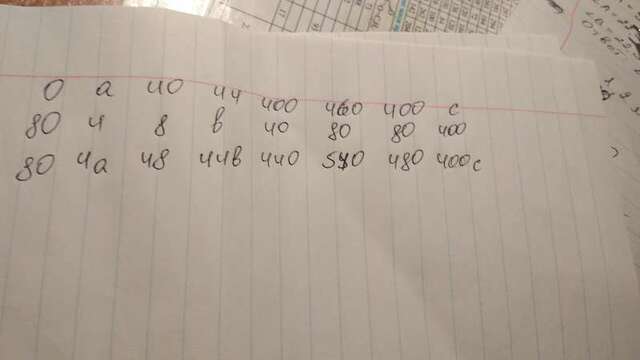 0 a 40 44 400 460 400 c
80 4 8 b 40 80 80 400
80 4a 48 44b 440 540 480 400c